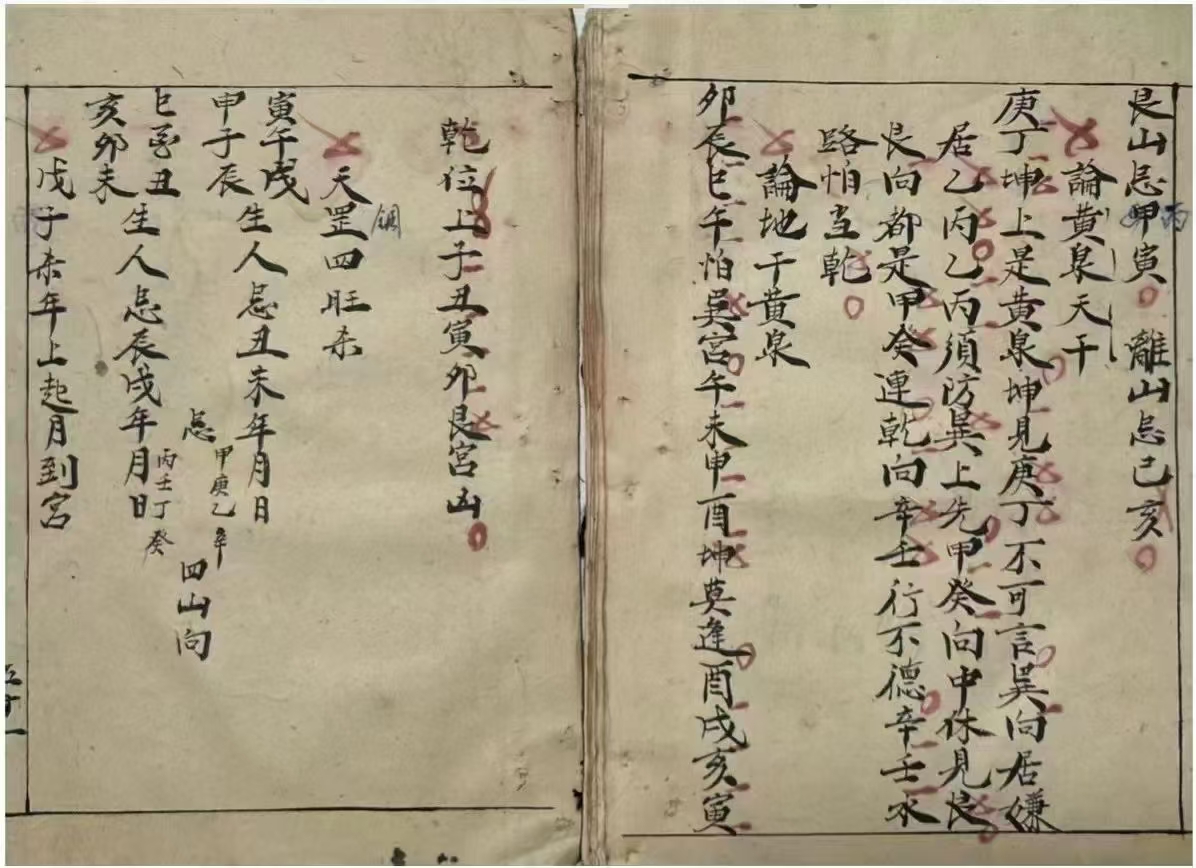 艮山忌甲寅 離山忌己亥
丙
論黃泉天干
庚丁坤上是黃泉坤見庚丁不可言巽向居嫌
居乙丙乙丙須防巽上先甲癸向中休見艮
艮向都是甲癸連乾向辛壬行不德辛壬水
路怕当乾
論地干黃泉
卯辰巳午怕巽宮午未申酉坤莫逢酉戌亥寅
乾位上子丑寅卯艮宮凶
天罡四旺杀
寅午戌
申子辰
生人忌丑未年月日
忌
甲庚乙辛
巳酉丑
亥卯未
生人忌辰戌年月日
丙壬丁癸
四山向
戊子杀年上起月到宮
五十一